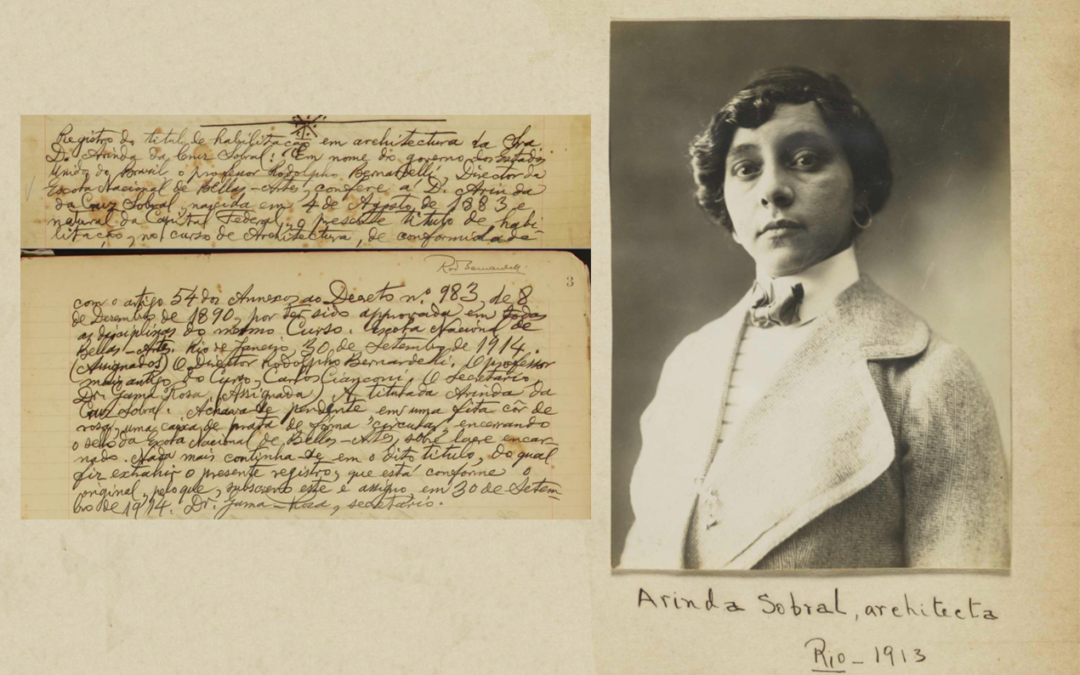 Registro do titulo de habilitação em architectura da Sra
D. Arinda da Cruz Sobral: "Em nome do governo dos Estados
Unidos do Brasil o professor Rodolpho Bernardelli, Director da
Escola Nacional de Bellas-Artes, confere a D. Arinda
da Cruz Sobral, nascida em 4 de Agosto de 1883 e
natural da Capital Federal, o presente titulo de habi-
litação, no curso de Architectura, de conformidade
3
com o artigo 54 dos Annexos ao Decreto nº 983, de 8
de Dezembro de 1890, por ter sido approvada em todas
as disciplinas do mesmo Curso. Escola Nacional de
Bellas-Artes. Rio de Janeiro, 30 de Setembro de 1914.
(Assignados) O Director Rodolpho Bernardelli. O professor
mais antigo do Curso, Carlos Cianconi, O secretario,
Dr. Gama Rosa, (Assignada) A titulada Arinda da
Cruz Sobral. Achava-se pendente em uma fita côr de
rosa, uma caixa de prata de fórma circular, encerrando
o sello da Escola Nacional de Bellas-Artes, sobre lacre encar-
nado. Nada mais continha-se em o dito titulo, do qual
fiz extrahir o presente registro, que está conforme o
original, pelo que, subscrevo este e assigno em 30 de Setem-
bro de 1914. Dr. Gama-Rosa, secretario.
Arinda Sobral, architecta
Rio - 1913